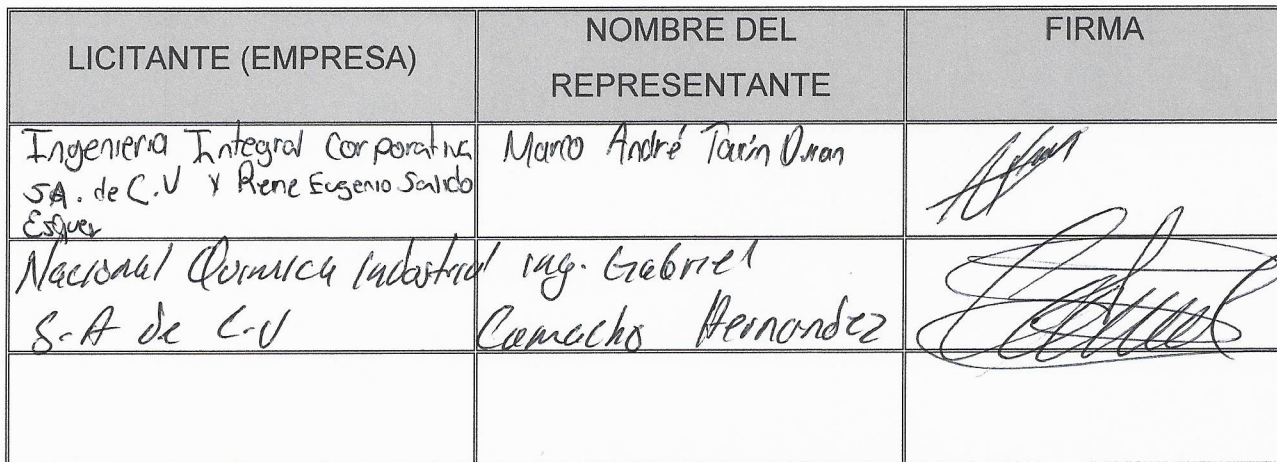 LICITANTE (EMPRESA)
NOMBRE DEL
REPRESENTANTE
FIRMA
Ingenieria Integral Corporativa
S.A. de C.V y Rene Eugenio Salido
Esquer
Marco André Tarín Duran
Nacional Quimica Industrial
S.A de C.V
ing. Gabriel
Camacho Hernandez